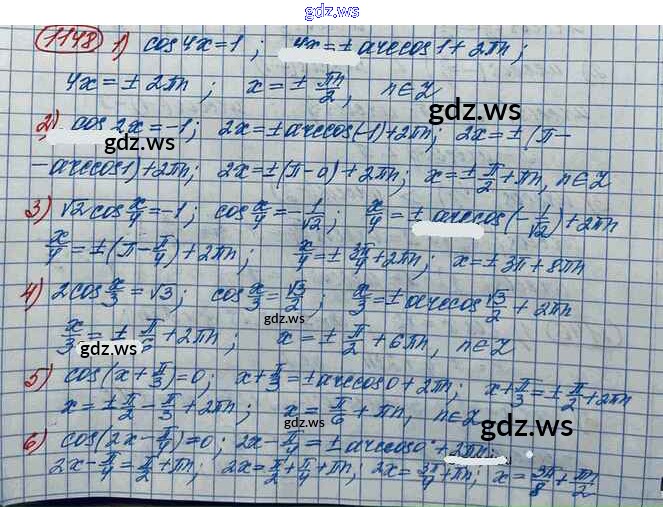 gdz.ws
1148 1) cos 4x = 1 ; 4x = ± arccos 1 + 2πn ;
4x = ± 2πn ; x = ± πn/2 , n ∈ Z
gdz.ws
2) cos 2x = -1 ; 2x = ± arccos(-1) + 2πn ; 2x = ± (π -
gdz.ws
- arccos 1) + 2πn ; 2x = ± (π - 0) + 2πn ; x = ± π/2 + πn, n ∈ Z
3) √2 cos x/4 = -1 ; cos x/4 = -1/√2 ; x/4 = ± arccos(-1/√2) + 2πn
gdz.ws
x/4 = ± (π - π/4) + 2πn ; x/4 = ± 3π/4 + 2πn ; x = ± 3π + 8πn
4) 2 cos x/3 = √3 ; cos x/3 = √3/2 ; x/3 = ± arccos √3/2 + 2πn
gdz.ws
x/3 = ± π/6 + 2πn ; x = ± π/2 + 6πn, n ∈ Z
gdz.ws
5) cos(x + π/3) = 0 ; x + π/3 = ± arccos 0 + 2πn ; x + π/3 = ± π/2 + 2πn
x = ± π/2 - π/3 + 2πn ; x = π/6 + πn, n ∈ Z
gdz.ws
6) cos(2x - π/4) = 0 ; 2x - π/4 = ± arccos 0 + 2πn ;
2x - π/4 = π/2 + πn ; 2x = π/2 + π/4 + πn ; 2x = 3π/4 + πn ; x = 3π/8 + πn/2
gdz.ws